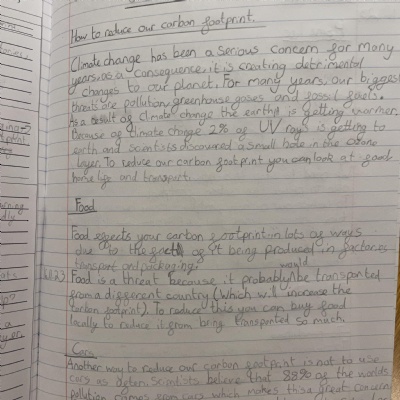 How to reduce our carbon footprint.
Climate change has been a serious concern for many
years, as a consequence, it is creating detrimental
changes to our planet. For many years, our biggest
threats are pollution, greenhouse gases and fossil fuels.
As a result of climate change the earth is getting warmer.
Because of climate change 2% of UV rays is getting to
earth and scientists discovered a small hole in the ozone
layer. To reduce our carbon footprint you can look at food
home life and transport.
Food
Food effects your carbon footprint in lots of ways
due to the of it being produced in factories
transport and packaging.
would
Food is a threat because it probably be transported
from a different country (which will increase the
carbon footprint). To reduce this you can buy food
locally to reduce it from being transported so much.
Cars
Another way to reduce our carbon footprint is not to use
cars as often. Scientists believe that 88% of the worlds
pollution comes from cars which makes this a great concern